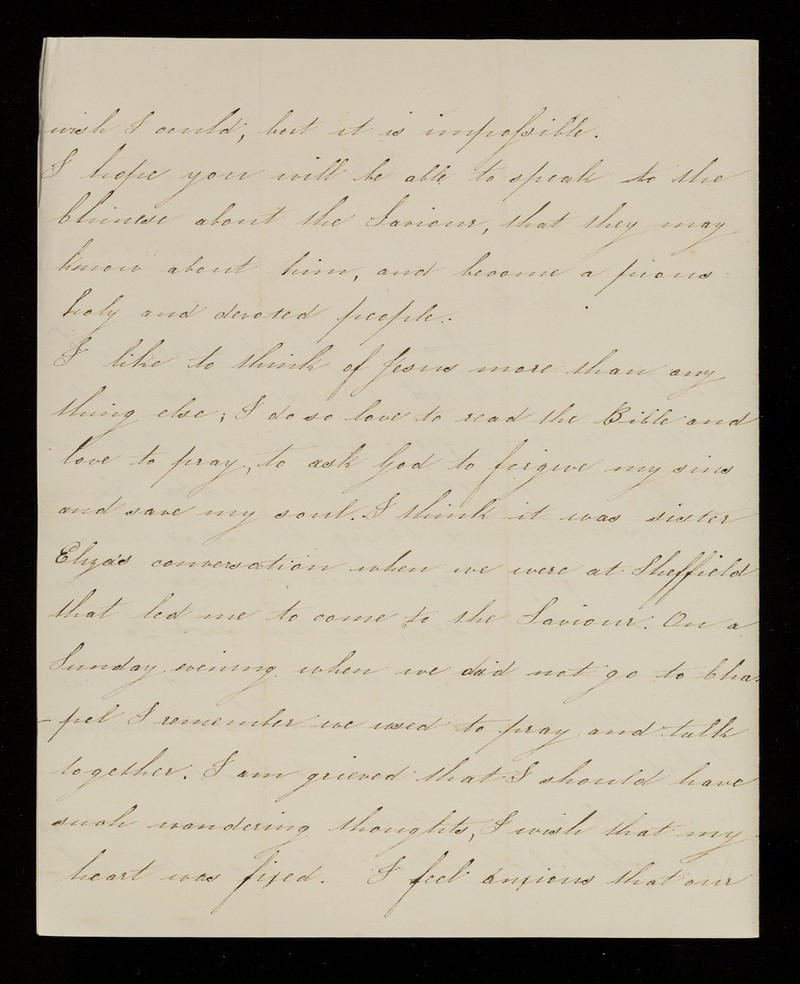 wish I could, but it is impossible.
I hope you will be able to speak to the
Chinese about the Saviour, that they may
know about him, and become a pious
holy and devoted people.
I like to think of Jesus more than any
thing else; I do so love to read the Bible and
love to pray, to ask God to forgive my sins
and save my soul. I think it was sister
Eliza's conversation when we were at Sheffield
that led me to come to the Saviour. On a
Sunday evening when we did not go to Cha-
-pel I remember we used to pray and talk
together. I am grieved that I should have
such wandering thoughts, I wish that my
heart was fixed. I feel anxious that our